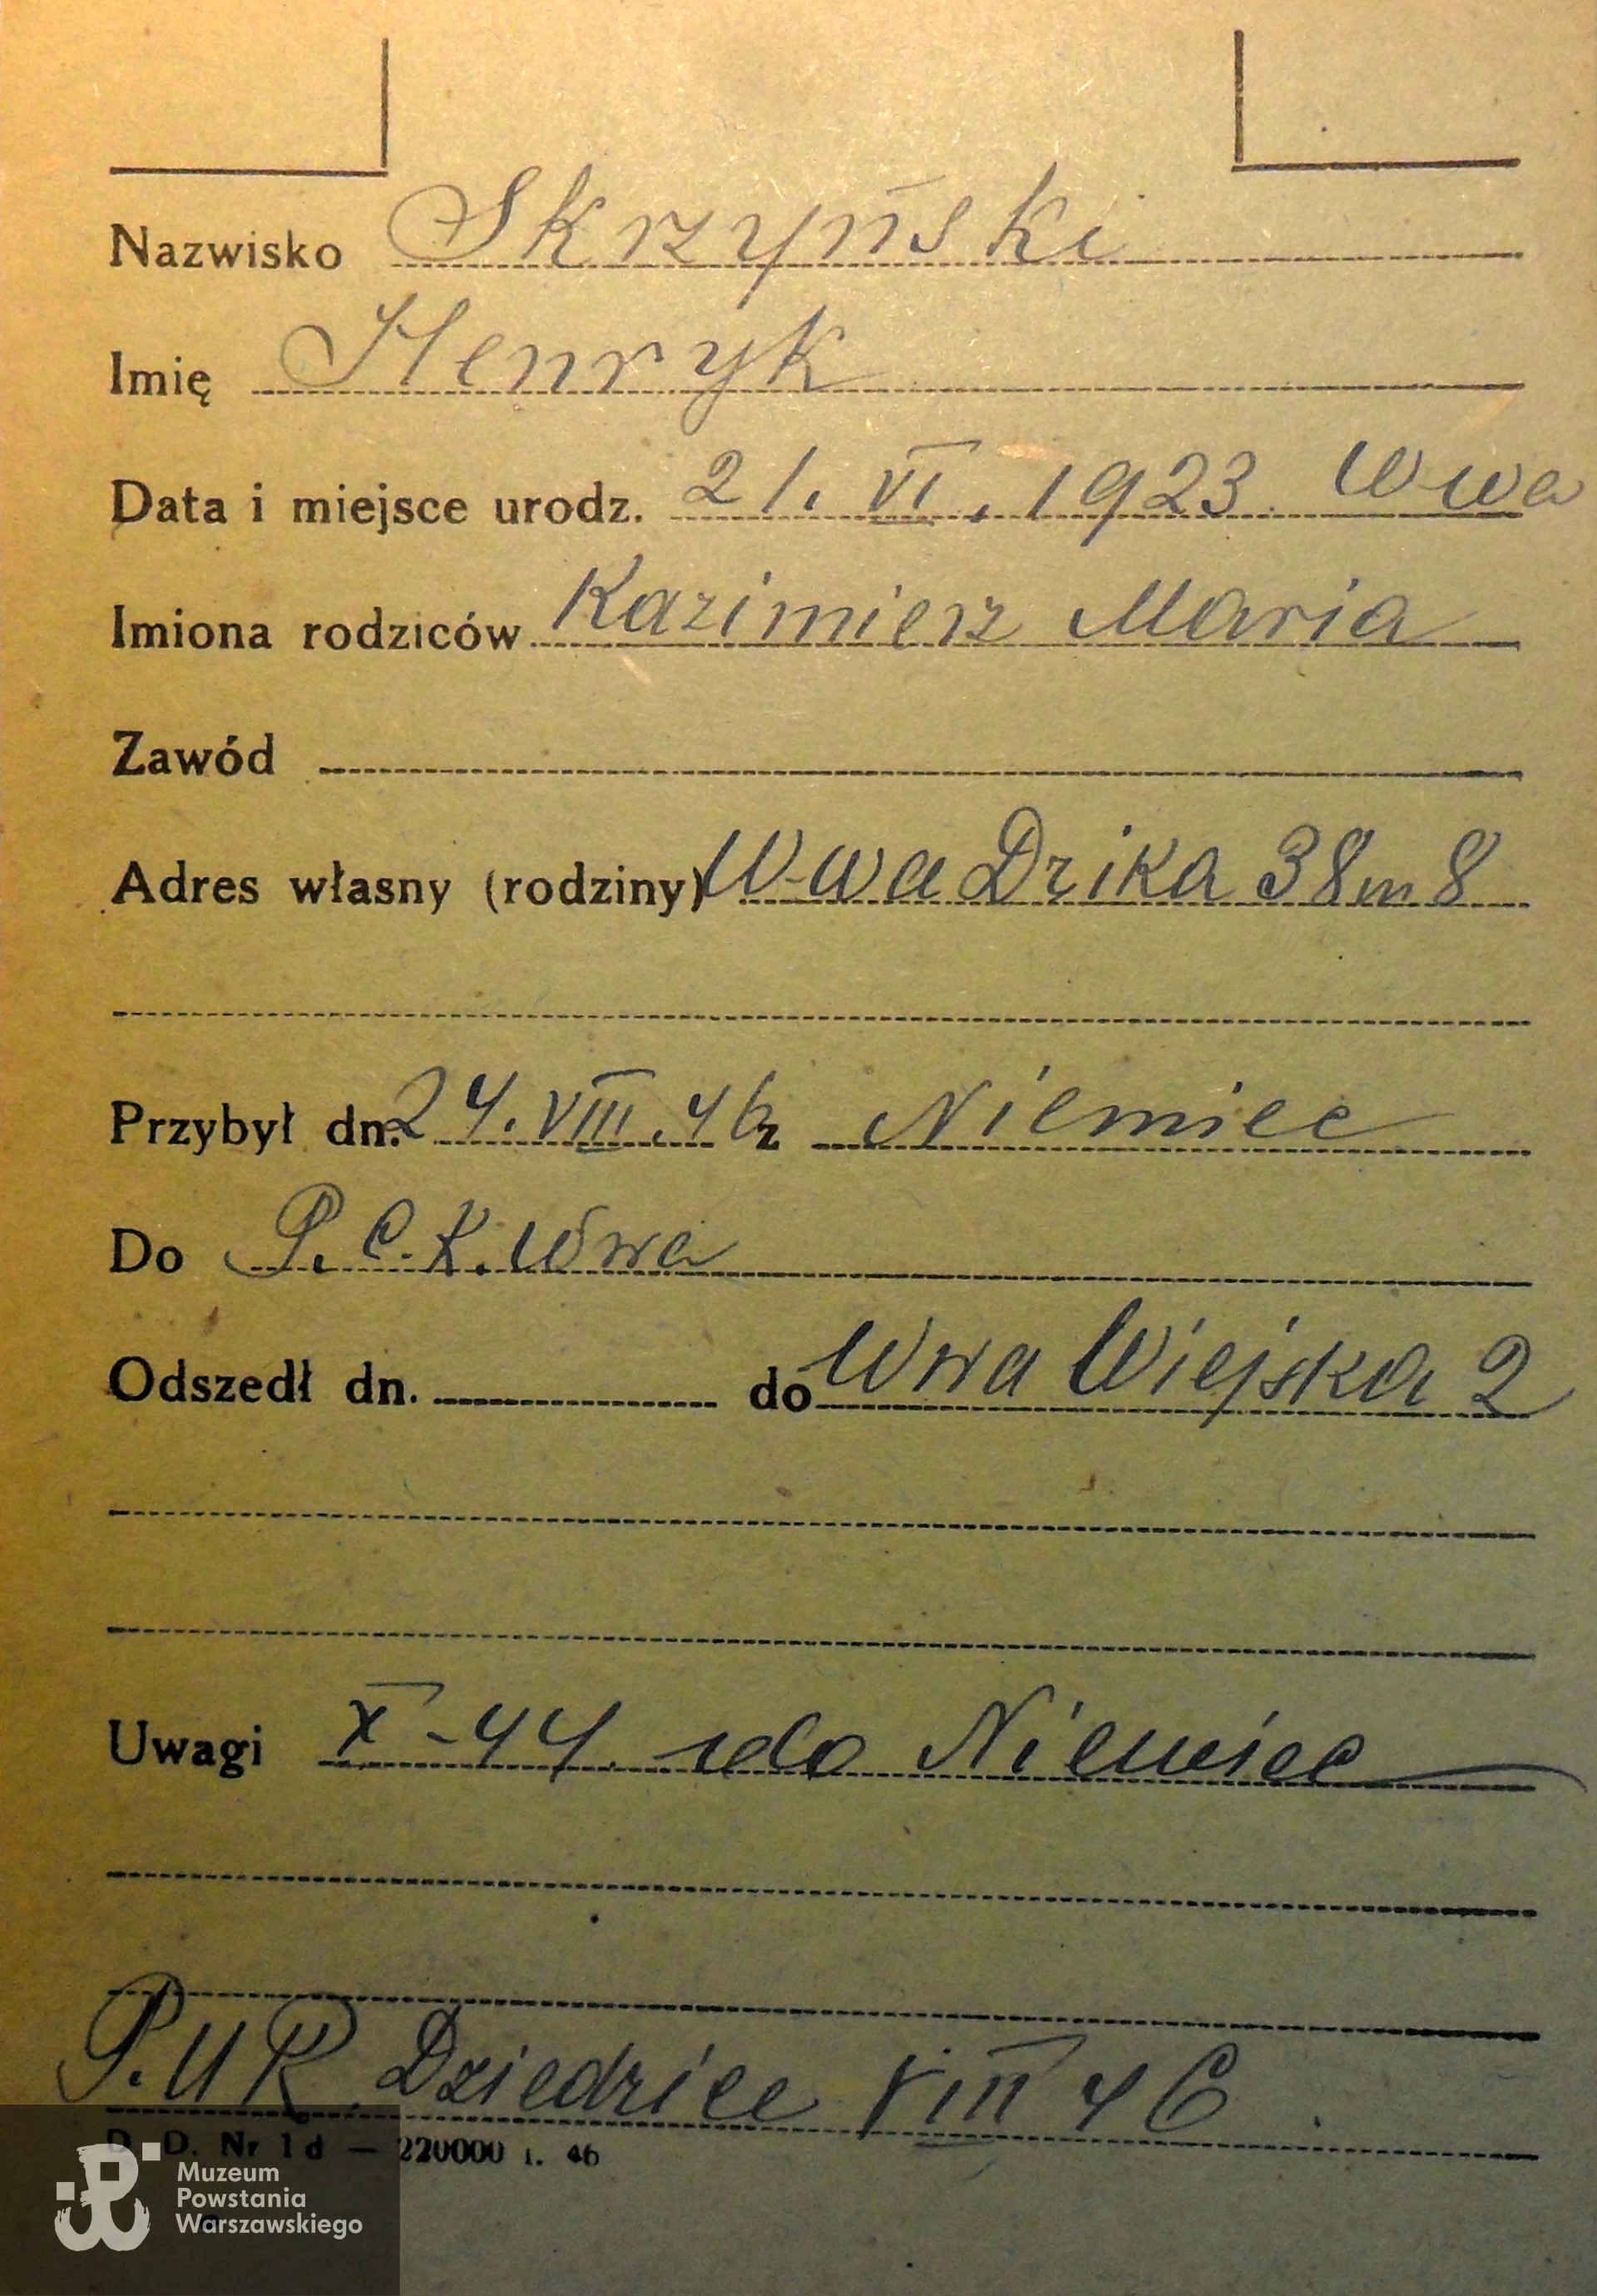 Nazwisko Skrzyński
Imię Henryk
Data i miejsce urodz. 21. VI. 1923 Wwa
Imiona rodziców Kazimierz Maria
Zawód
Adres własny (rodziny) W-wa Dzika 38 m 8
Przybył dn. 24. VIII. 46 z Niemiec
Do P. C. K. Wwa
Odszedł dn. do Wwa Wiejska 2
Uwagi X-44 do Niemiec
P.U R. Dziedzice VIII 46
D. D. Nr 1 d — 220000 i. 46
Muzeum
Powstania
Warszawskiego